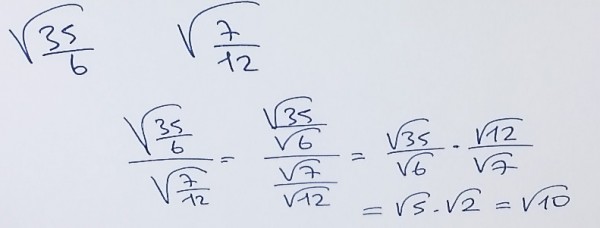 √(35/6) √(7/12)
√(35/6) / √(7/12) = (√35/√6) / (√7/√12) = √35/√6 · √12/√7
= √5 · √2 = √10